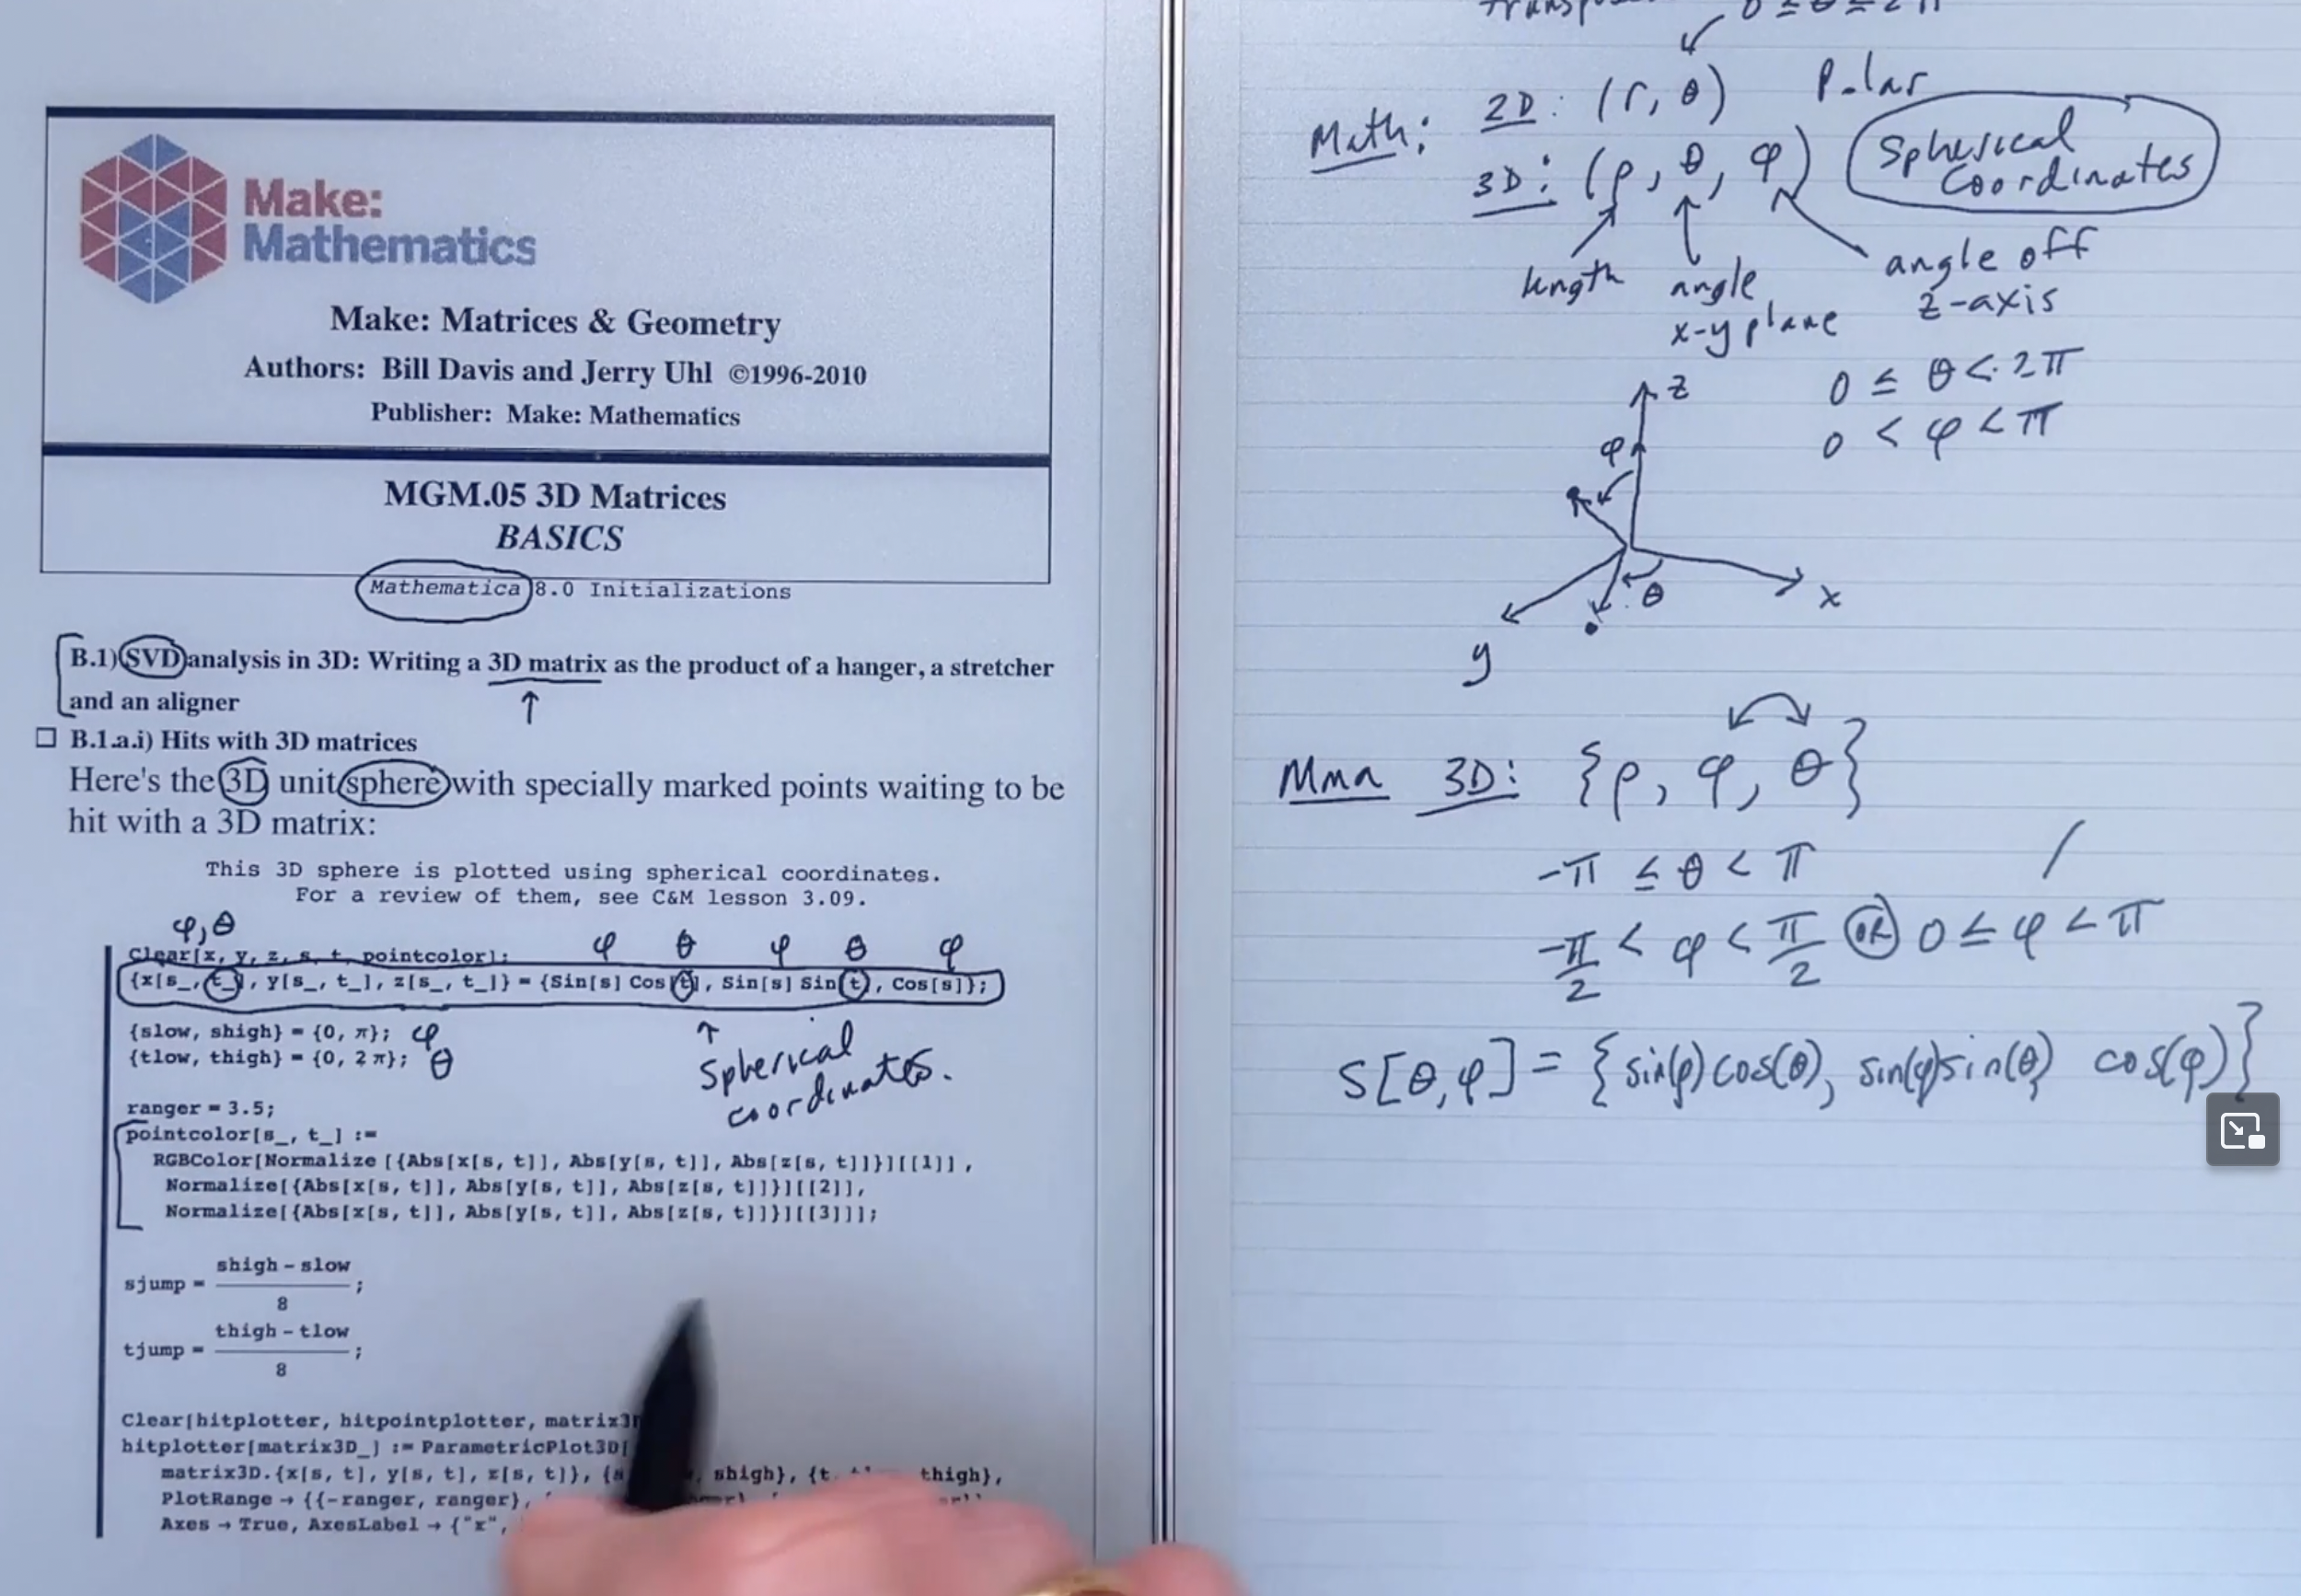 Make:
Mathematics
Make: Matrices & Geometry
Authors: Bill Davis and Jerry Uhl ©1996-2010
Publisher: Make: Mathematics
MGM.05 3D Matrices
BASICS
Mathematica 8.0 Initializations
B.1) SVD analysis in 3D: Writing a 3D matrix as the product of a hanger, a stretcher
and an aligner
↑
B.1.a.i) Hits with 3D matrices
Here's the 3D unit sphere with specially marked points waiting to be
hit with a 3D matrix:
This 3D sphere is plotted using spherical coordinates.
For a review of them, see C&M lesson 3.09.
φ, θ
Clear[x, y, z, s, t, pointcolor];
φ θ φ θ φ
{x[s_, t_], y[s_, t_], z[s_, t_]} = {Sin[s] Cos[t], Sin[s] Sin[t], Cos[s]};
{slow, shigh} = {0, π}; φ
{tlow, thigh} = {0, 2 π}; θ
↑
Spherical
coordinates.
ranger = 3.5;
pointcolor[s_, t_] :=
RGBColor[Normalize [{Abs[x[s, t]], Abs[y[s, t]], Abs[z[s, t]]}][[1]] ,
Normalize[{Abs[x[s, t]], Abs[y[s, t]], Abs[z[s, t]]}][[2]],
Normalize[{Abs[x[s, t]], Abs[y[s, t]], Abs[z[s, t]]}][[3]]];
sjump = shigh - slow
8 ;
tjump = thigh - tlow
8 ;
Clear[hitplotter, hitpointplotter,
hitplotter[matrix3D_] := ParametricPlot3D[
matrix3D.{x[s, t], y[s, t], z[s, t]}, shigh}, {t, thigh},
PlotRange → {{-ranger, ranger},
Axes → True, AxesLabel → {"x",
0 ≤ θ ≤ 2π
Math: 2D: (r, θ) Polar
3D: (ρ, θ, φ) Spherical
Coordinates
length angle
x-y plane
angle off
z-axis
0 ≤ θ < 2π
0 < φ < π
z
φ
θ
x
y
Mma 3D: {ρ, φ, θ}
-π ≤ θ < π
-π/2 < φ < π/2 OR 0 ≤ φ < π
S[θ,φ] = {sin(φ)cos(θ), sin(φ)sin(θ) cos(φ)}